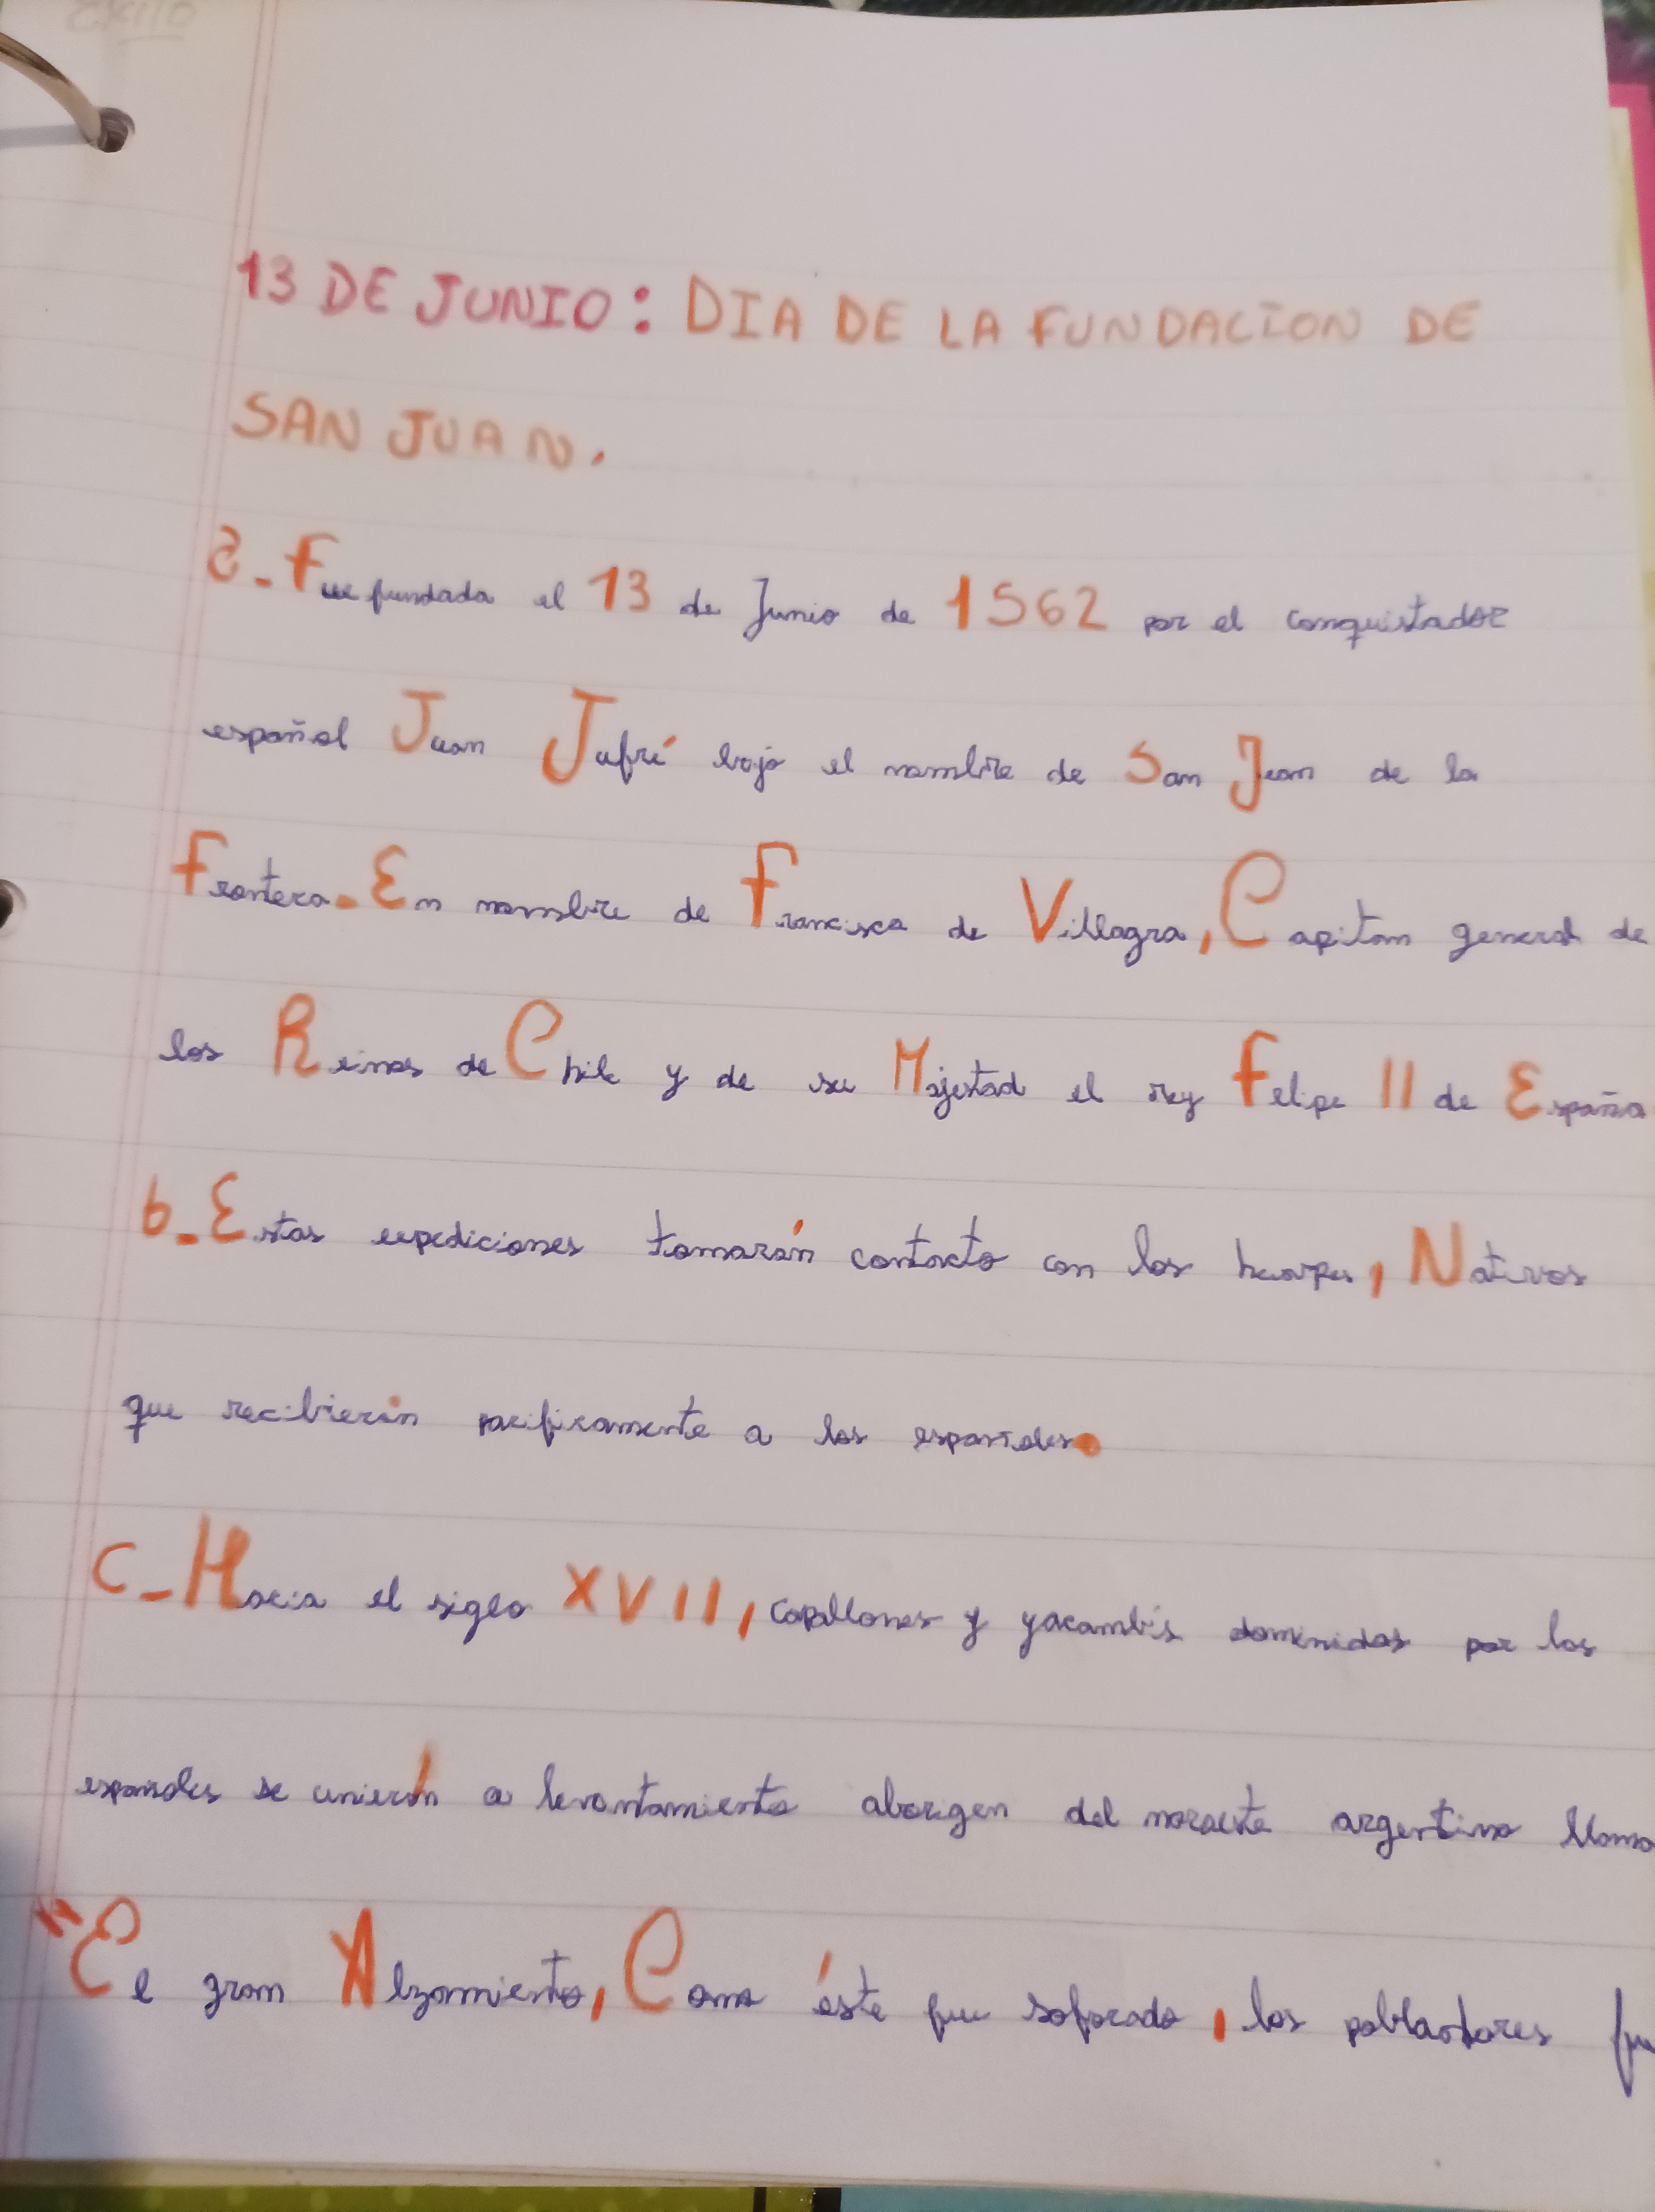 13 DE JUNIO: DIA DE LA FUNDACION DE
SAN JUAN.
a_Fue fundada el 13 de Junio de 1562 por el conquistador
español Juan Jufré bajo el nombre de San Juan de la
Frontera. En nombre de Francisca de Villagra, Capitan general de
los Reinos de Chile y de su Majestad el rey Felipe II de España
b_Estas expediciones tomarán contacto con los huarpes, Nativos
que recibierón pacificamente a los españoles.
C_Hacia el siglo XVII, capallones y yacambis dominidos por los
españoles se unierón a levantamiento aborigen del noroeste argentino llama
"El gran Alzamiento, Como éste fue sofocado, los pobladores fu